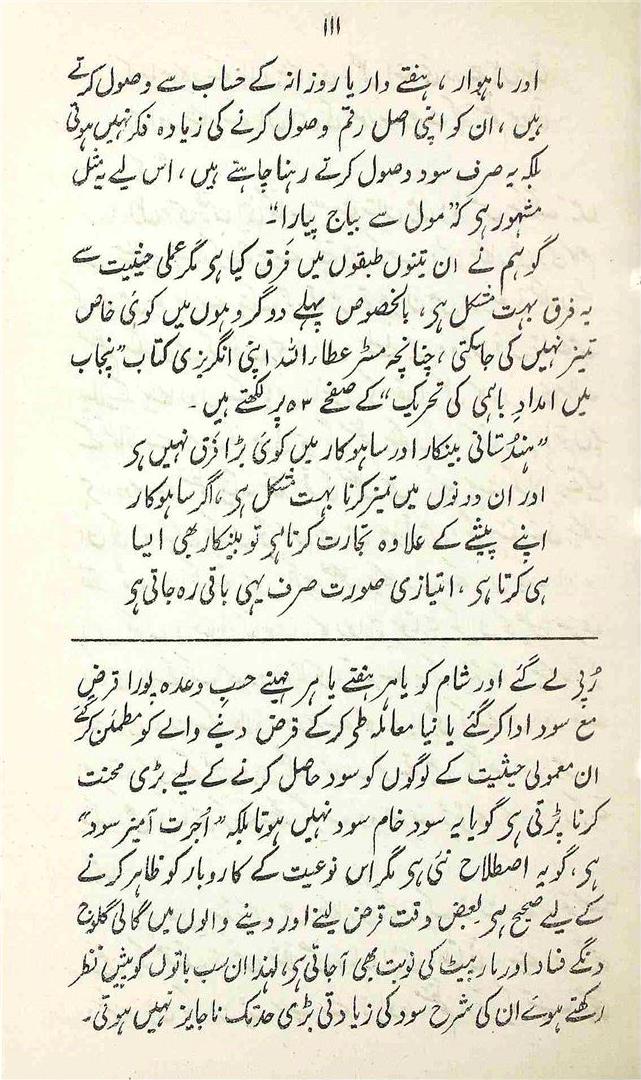 ۱۱۱
اور ماہوار ، ہفتے وار یا روزانہ کے حساب سے وصول کرتے
ہیں ، ان کو اپنی اصل رقم وصول کرنے کی زیادہ فکر نہیں ہوتی
بلکہ یہ صرف سود وصول کرتے رہنا چاہتے ہیں ، اس لیے یہ مثل
مشہور ہی کہ "مول سے بیاج پیارا"۔
گو ہم نے ان تینوں طبقوں میں فرق کیا ہی مگر عملی حیثیت سے
یہ فرق بہت مشکل ہی ، بالخصوص پہلے دو گروہوں میں کوئ خاص
تمیز نہیں کی جاسکتی ، چنانچہ مسٹر عطاء اللہ اپنی انگریزی کتاب "پنجاب
میں امدادِ باہمی کی تحریک" کے صفحے ۵۳ پر لکھتے ہیں ۔
"ہندُستانی بینکار اور ساہوکار میں کوئ بڑا فرق نہیں ہی
اور ان دونوں میں تمیز کرنا بہت مشکل ہی ، اگر ساہوکار
اپنے پیشے کے علاوہ تجارت کرتا ہی تو بینکار بھی ایسا
ہی کرتا ہی ، امتیازی صورت صرف یہی باقی رہ جاتی ہی
رُپی لے گئے اور شام کو یا ہر ہفتے یا ہر مہینے حسبِ وعدہ پورا قرض
مع سود ادا کر گئے یا نیا معاملہ طی کرکے قرض دینے والے کو مطمئن کر گئے
ان معمولی حیثیت کے لوگوں کو سود حاصل کرنے کے لیے بڑی محنت
کرنا پڑتی ہی گویا یہ سود خام سود نہیں ہوتا بلکہ "اُجرت آمیز سود"
ہی ، گو یہ اصطلاح نئی ہی مگر اس نوعیت کے کاروبار کو ظاہر کرنے
کے لیے صحیح ہی بعض وقت قرض لینے اور دینے والوں میں گالی گلوج
دنگے فساد اور مار پیٹ کی نوبت بھی آجاتی ہی ، لہٰذا ان سب باتوں کو پیشِ نظر
رکھتے ہوئے ان کی شرح سود کی زیادتی بڑی حد تک ناجایز نہیں ہوتی ۔